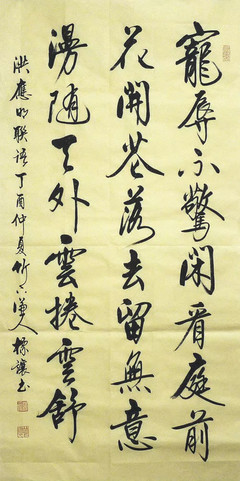 寵辱不驚閑看庭前
花開花落去留無意
漫随天外雲捲雲舒
洪應明聯語丁酉仲夏竹人讓書